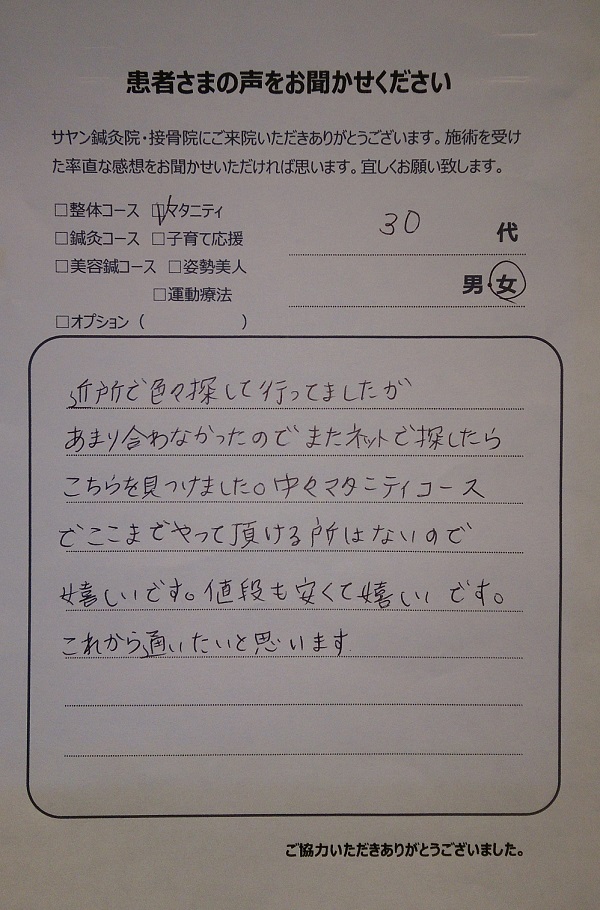 患者さまの声をお聞かせください
サヤン鍼灸院・接骨院にご来院いただきありがとうございます。施術を受け
た率直な感想をお聞かせいただければ思います。宜しくお願い致します。
□整体コース ☑マタニティ
□鍼灸コース □子育て応援
□美容鍼コース □姿勢美人
□運動療法
□オプション（ ）
30 代
男・女
近所で色々探して行ってましたが
あまり合わなかったのでまたネットで探したら
こちらを見つけました。中々マタニティコース
でここまでやって頂ける所はないので
嬉しいです。値段も安くて嬉しいです。
これから通いたいと思います
ご協力いただきありがとうございました。